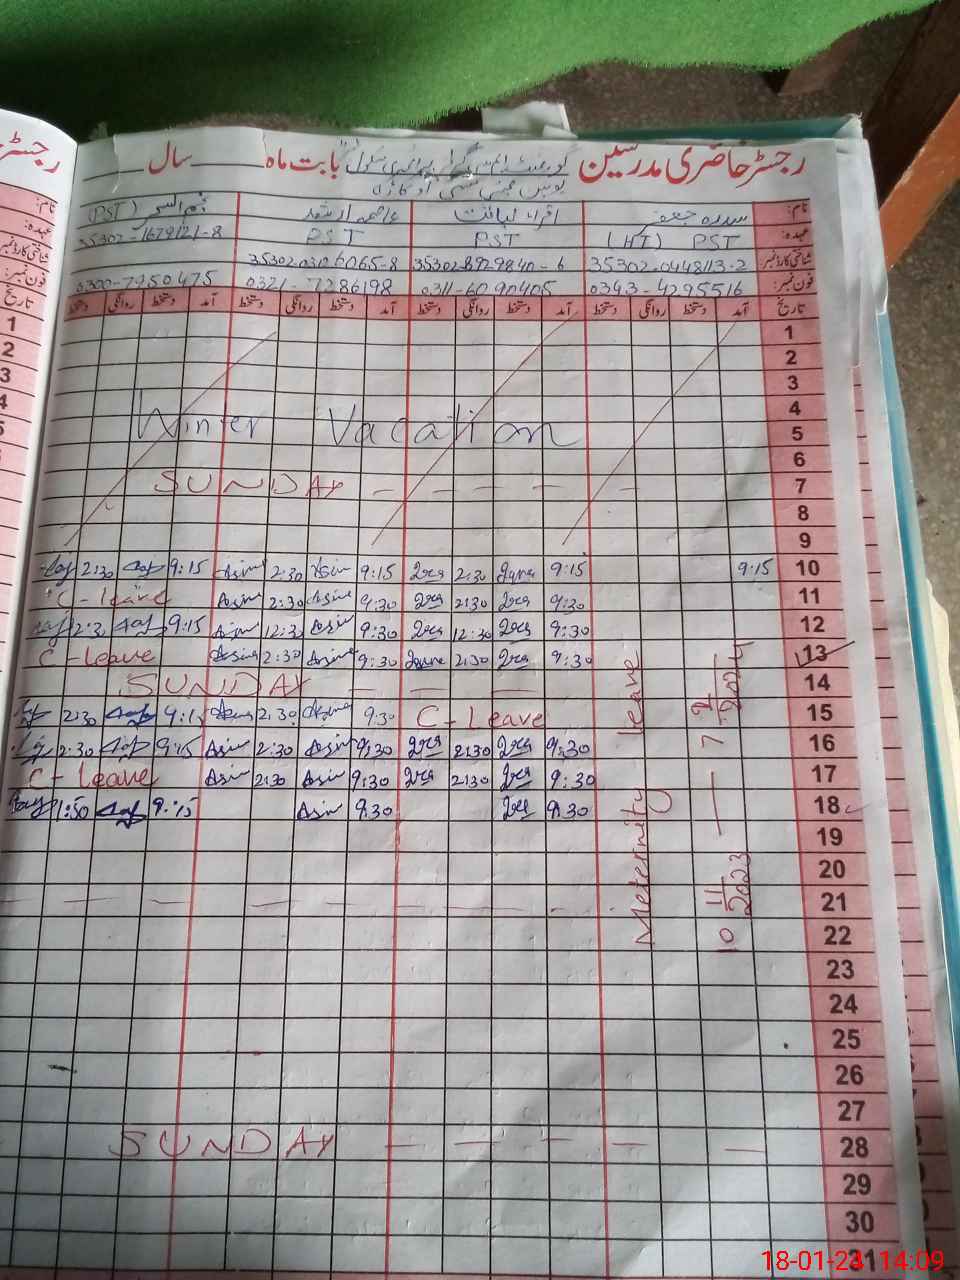 رجسٹر حاضری مدرسین گورنمنٹ گرلز پرائمری سکول بابت ماہ سال
نام: سدرہ جعفر اقراء لیاقت عاصمہ ارشد نجم السحر (PST)
عہدہ: (HT) PST PST PST
شناختی کارڈ نمبر 35302-0448113-2 35302-8929840-6 35302-0306065-8 35302-1679121-8
فون نمبر: 0343-4295516 0311-6090405 0321-7286198 0300-7950475
تاریخ آمد دستخط روانگی دستخط آمد دستخط روانگی دستخط آمد دستخط روانگی دستخط آمد دستخط روانگی دستخط
1
2
3
4
Winter Vacation
5
6
SUNDAY - - - - - 7
8
9
2:30 9:15 2:30 9:15 2:30 9:15 9:15 10
C-leave 2:30 9:30 2:30 9:30 11
2:30 9:15 12:30 9:30 12:30 9:30 12
C-leave 2:30 9:30 2:30 9:30 13
SUNDAY - - - 14
2:30 9:15 2:30 9:30 C-Leave 15
2:30 9:15 2:30 9:30 2:30 9:30 16
C-leave 2:30 9:30 2:30 9:30 17
1:50 9:15 9.30 9:30 18
Meternity leave
10 11/2023 — 7 2/2024
19
20
21
22
23
24
25
26
27
SUNDAY - - - - - 28
29
30
31
رجسٹر
1
2
3
4
5
18-01-24 14:09